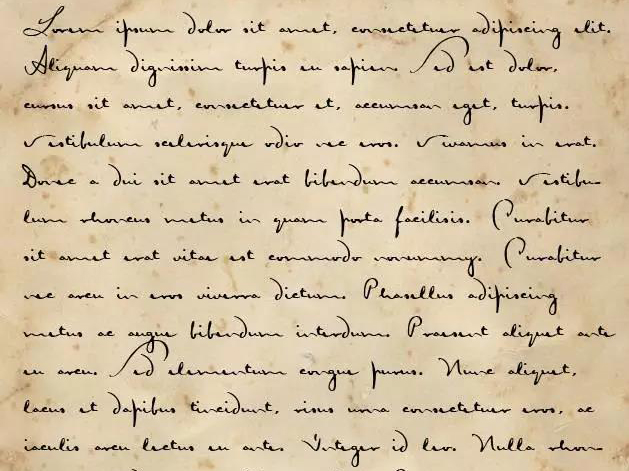 Lorem ipsum dolor sit amet, consectetuer adipiscing elit.
Aliquam dignissim turpis eu sapien. Sed est dolor,
cursus sit amet, consectetuer et, accumsan eget, turpis.
Vestibulum scelerisque odio nec eros. Vivamus in erat.
Donec a dui sit amet erat bibendum accumsan. Vestibu-
lum rhoncus metus in quam porta facilisis. Curabitur
sit amet erat vitae est commodo nonummy. Curabitur
nec arcu in eros viverra dictum. Phasellus adipiscing
metus ac augue bibendum interdum. Praesent aliquet ante
eu arcu. Sed elementum congue purus. Nunc aliquet,
lacus et dapibus tincidunt, risus urna consectetuer eros, ac
iaculis arcu lectus eu ante. Integer id leo. Nulla rhon-